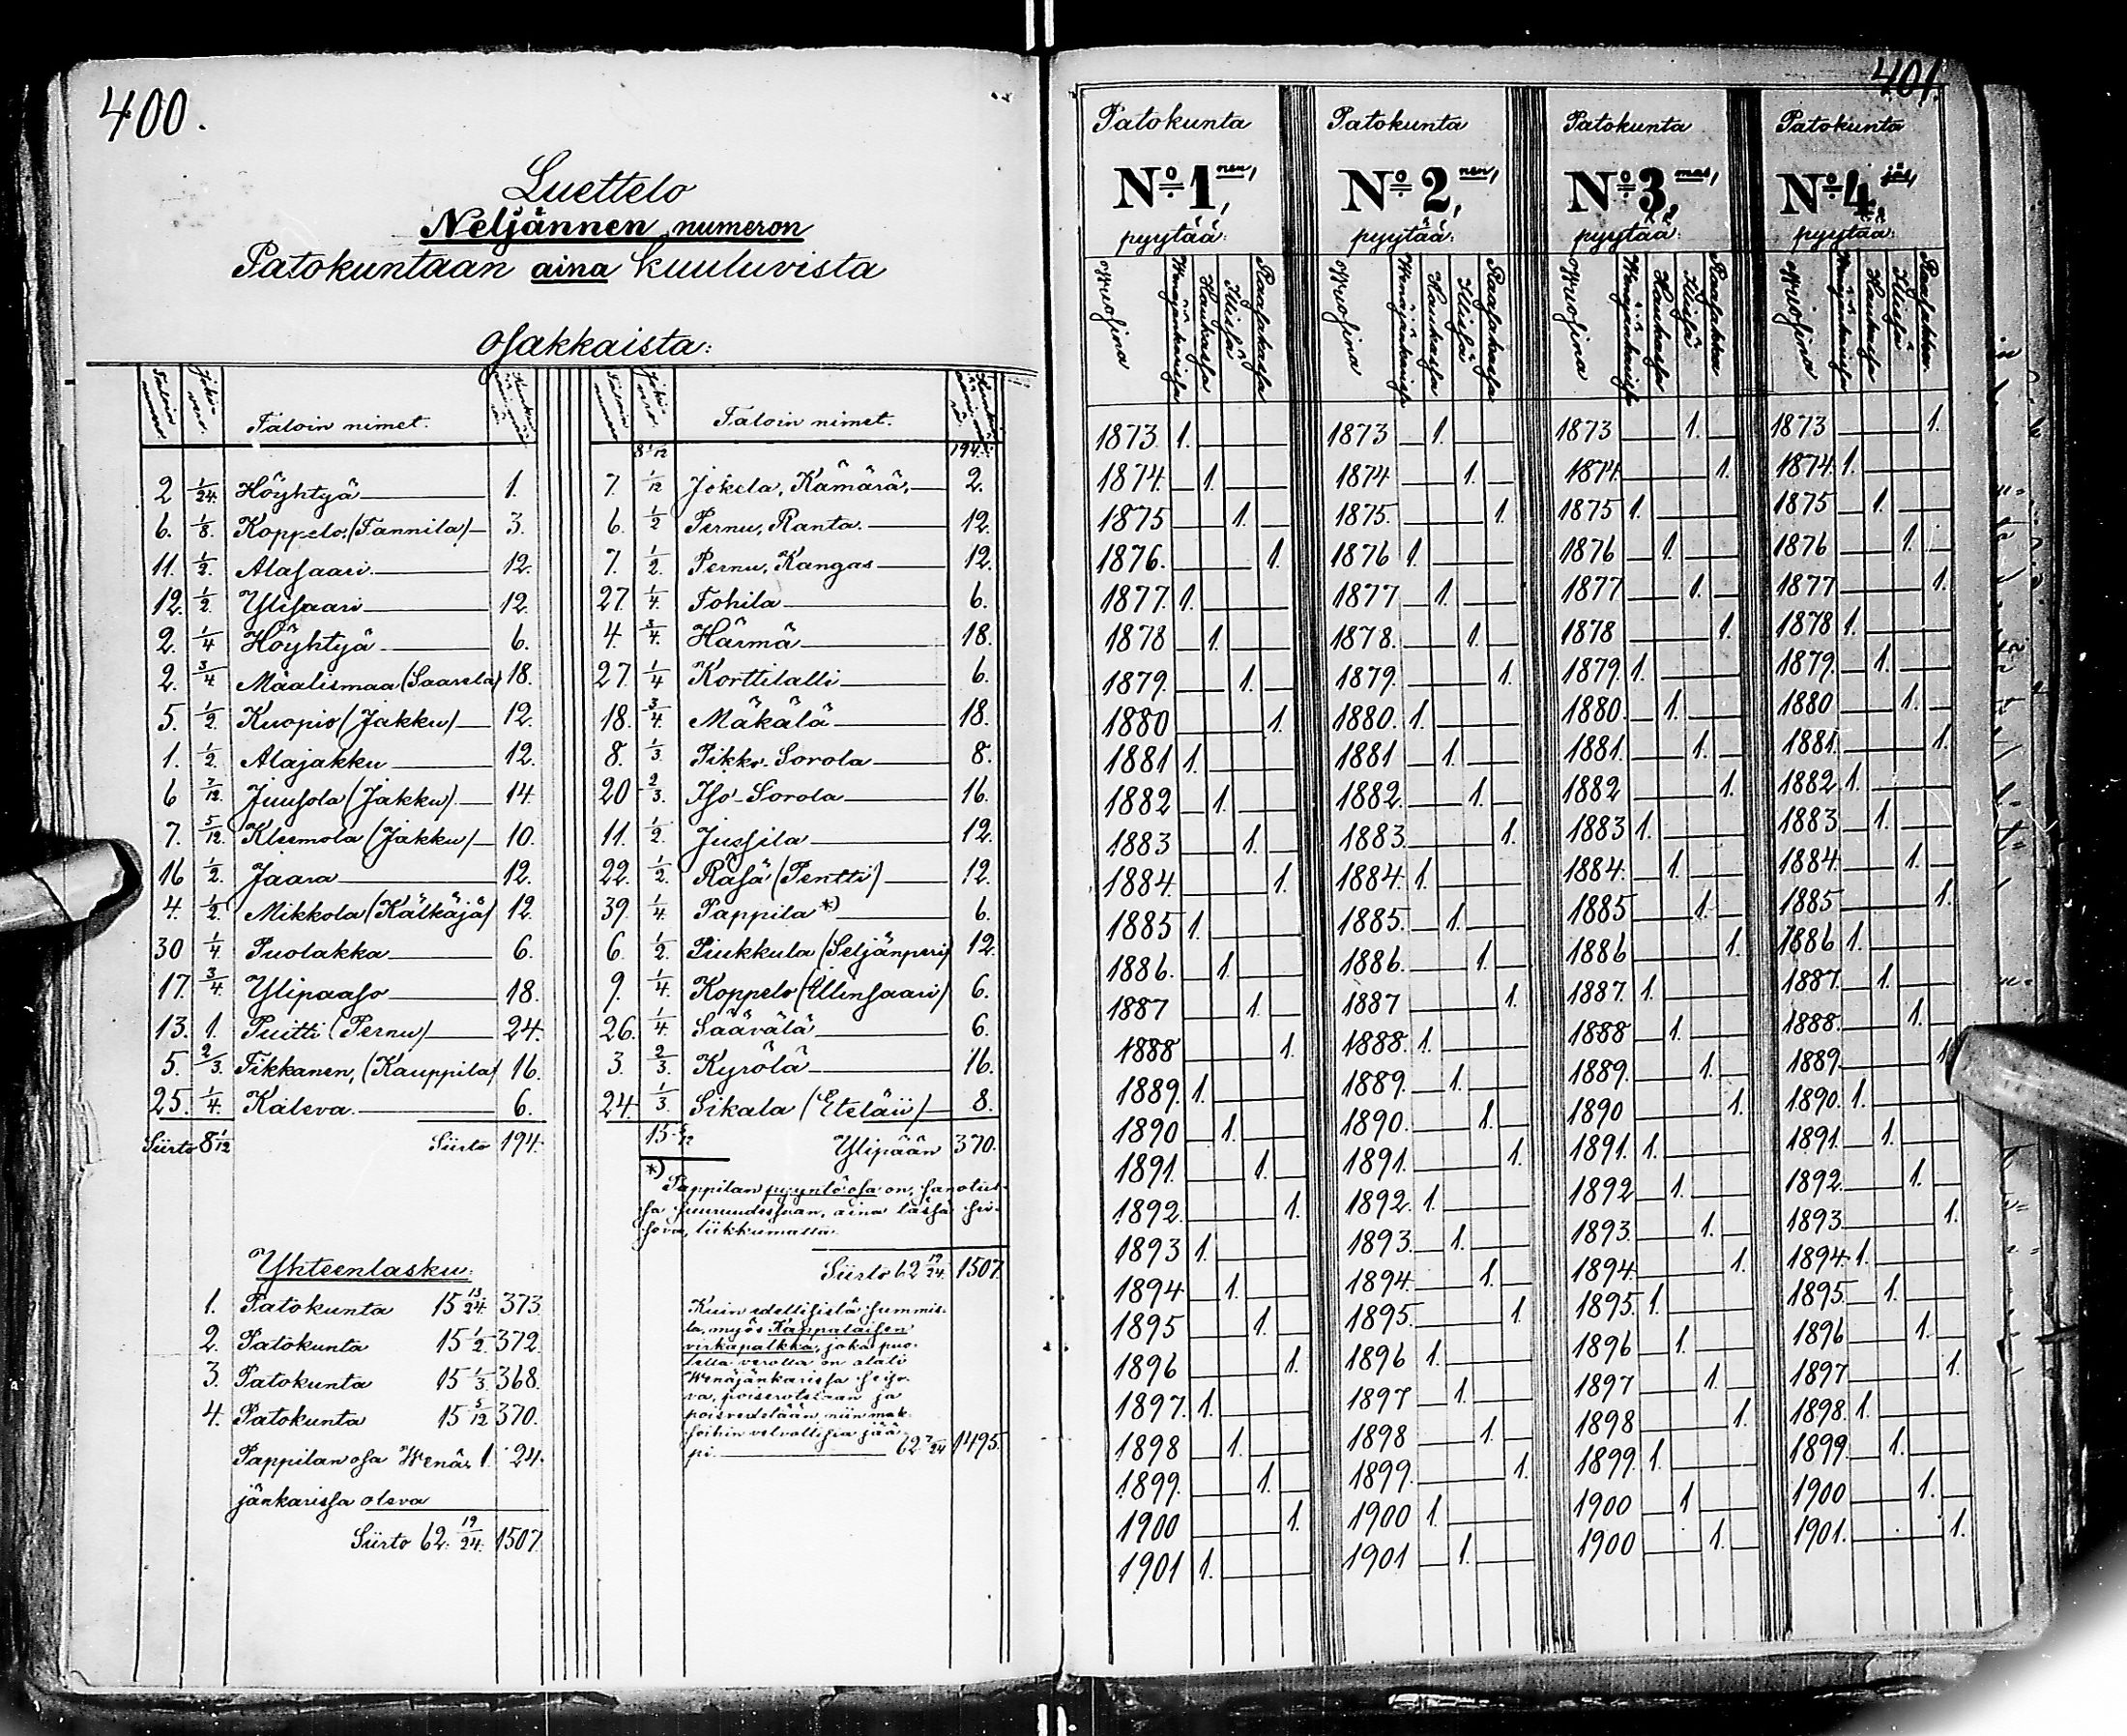 400.
Luettelo
Neljännen numeron
Patokuntaan aina kuuluvista
osakkaista:
Taloin nimet.
2 1/24. Höyhtyä 1.
6. 1/8. Koppelo. (Tannila) 3.
11. 1/2. Alasaari 12.
12. 1/2. Ylisaari 12.
2. 1/4 Höyhtyä 6.
2. 3/4 Maalismaa (Saarela) 18.
5. 1/2. Kuopio (Jakku) 12.
1. 1/2. Alajakku 12.
6 7/12. Juusola (Jakku) 14.
7. 5/12. Klemola (Jakku) 10.
16 1/2. Jaara 12.
4. 1/2. Mikkola (Kälkäjä) 12.
30 1/4 Puolakka 6.
17. 3/4 Ylipaaso 18.
13. 1. Puitti (Pernu) 24.
5. 2/3. Tikkanen, (Kauppila) 16.
25. 1/4. Kaleva 6.
Siirto 8 1/12 Siirto 194.
Yhteenlasku:
1. Patokunta 15 13/24. 373
2. Patokunta 15 1/2. 372.
3. Patokunta 15 1/3. 368.
4. Patokunta 15 5/12 370.
Pappilan osa Wenä- 1. 24.
jänkarissa oleva
Siirto 62. 19/24. 1507.
Taloin nimet.
8 1/12 194.
7. 1/12 Jokela, Kämärä, 2.
6. 1/2 Pernu, Ranta. 12.
7. 1/2. Pernu, Kangas 12.
27. 1/4. Tohila 6.
4. 3/4. Härmä 18.
27. 1/4 Korttilalli 6.
18. 3/4. Mäkälä 18.
8. 1/3. Pikko-Sorola 8.
20 2/3. Iso-Sorola 16.
11. 1/2. Jussila 12.
22. 1/2. Räsä (Pentti) 12.
39. 1/4 Pappila *) 6.
6. 1/2. Piukkula (Seljänperä) 12.
9. 1/4. Koppelo (Ullinsaari) 6.
26. 1/4 Säävälä 6.
3. 2/3. Kyrölä 16.
24. 1/3. Sikala (Eteläii) 8.
15 5/12 Ylipään 370.
*) Pappilan pyyntöosa on, sanotus-
sa suuruudessaan, aina tässä sei-
sova, liikkumatta.
Siirto 62 19/24. 1507.
Kuin edellisistä summis-
ta, myös Kappalaisen
virkapalkka, joka puo-
lella verolla on alati
Wenäjänkarissa seiso-
va, poiserotetaan ja
poisvedetään, niin mak-
soihin velvollisia jää-
pi. 62 7/24 1495.
401.
Patokunta Patokunta Patokunta Patokunta
No 1 nen, No 2 nen, No 3 mas, No 4 jäs,
pyytää: pyytää: pyytää: pyytää:
Wuosina Wenäjänkarissa Haukassa Iliisä Raasakassa Wuosina Wenäjänkarissa Haukassa Iliisä Raasakassa Wuosina Wenäjänkarissa Haukassa Iliisä Raasakka Wuosina Wenäjänkarissa Haukassa Iliisä Raasakka
1873 1. 1873 1. 1873 1. 1873 1.
1874. 1. 1874 1. 1874. 1. 1874. 1.
1875 1. 1875. 1. 1875 1. 1875 1.
1876. 1. 1876 1. 1876 1. 1876 1.
1877. 1. 1877 1. 1877 1. 1877 1.
1878 1. 1878. 1. 1878 1. 1878 1.
1879. 1. 1879. 1. 1879. 1. 1879. 1.
1880 1. 1880. 1. 1880. 1. 1880 1.
1881 1. 1881 1. 1881. 1. 1881. 1.
1882 1. 1882. 1. 1882 1. 1882 1.
1883 1. 1883. 1. 1883 1. 1883 1.
1884. 1. 1884. 1. 1884. 1. 1884. 1.
1885 1. 1885. 1. 1885 1. 1885 1.
1886. 1. 1886. 1. 1886 1. 1886 1.
1887 1. 1887 1. 1887. 1. 1887. 1.
1888 1. 1888. 1. 1888 1. 1888. 1.
1889. 1. 1889. 1. 1889. 1. 1889. 1.
1890 1. 1890. 1. 1890 1. 1890. 1.
1891. 1. 1891. 1. 1891. 1. 1891. 1.
1892. 1. 1892. 1. 1892 1. 1892. 1.
1893 1. 1893. 1. 1893. 1. 1893 1.
1894 1. 1894. 1. 1894. 1. 1894. 1.
1895 1. 1895. 1. 1895. 1. 1895. 1.
1896 1. 1896 1. 1896 1. 1896 1.
1897. 1. 1897 1. 1897 1. 1897 1.
1898 1. 1898 1. 1898 1. 1898. 1.
1899. 1. 1899. 1. 1899. 1. 1899. 1.
1900 1. 1900 1. 1900 1 1900 1.
1901 1. 1901 1. 1900 1. 1901. 1.